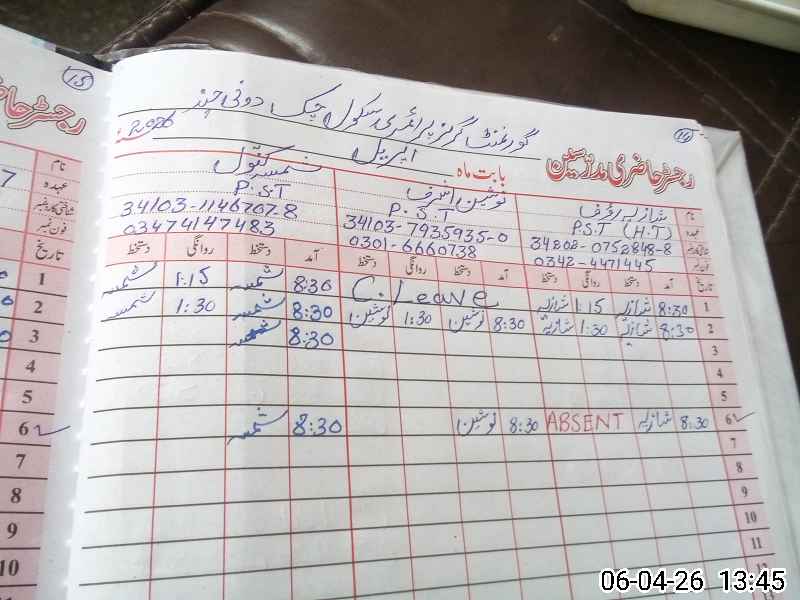 15
رجسٹر حاضری
نام
عہدہ
شناختی کارڈ نمبر
فون نمبر
تاریخ
1
2
3
4
5
6
7
8
9
10
11
گورنمنٹ گرلز پرائمری سکول چک دونی چند
2026
رجسٹر حاضری مدرسین
بابت ماہ اپریل
نام شازیہ رؤف نوشین اشرف شمسہ کنول
عہدہ P.S.T (H.T) P.S.T P.S.T
34202-0752848-8 34103-7935935-0 34103-1146707-8
فون نمبر 0342-4471445 0301-6660738 03474147483
تاریخ آمد دستخط روانگی دستخط آمد دستخط روانگی دستخط آمد دستخط روانگی دستخط
1 8:30 شازیہ 1:15 شازیہ C.Leave 8:30 شمسہ 1:15 شمسہ
2 8:30 شازیہ 1:30 شازیہ 8:30 نوشین 1:30 نوشین 8:30 شمسہ 1:30 شمسہ
3 8:30 شمسہ
4
5
6 8:30 شازیہ ABSENT 8:30 نوشین 8:30 شمسہ
7
8
9
10
11
12
06-04-26 13:45